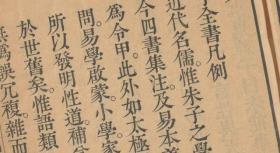 子全書凡例
近代名儒惟朱子之學
今四書集注及易本義
爲令甲此外如太極
問易學啟蒙小學家
所以發明性道補
於世舊矣惟語類
誤冗複雜而